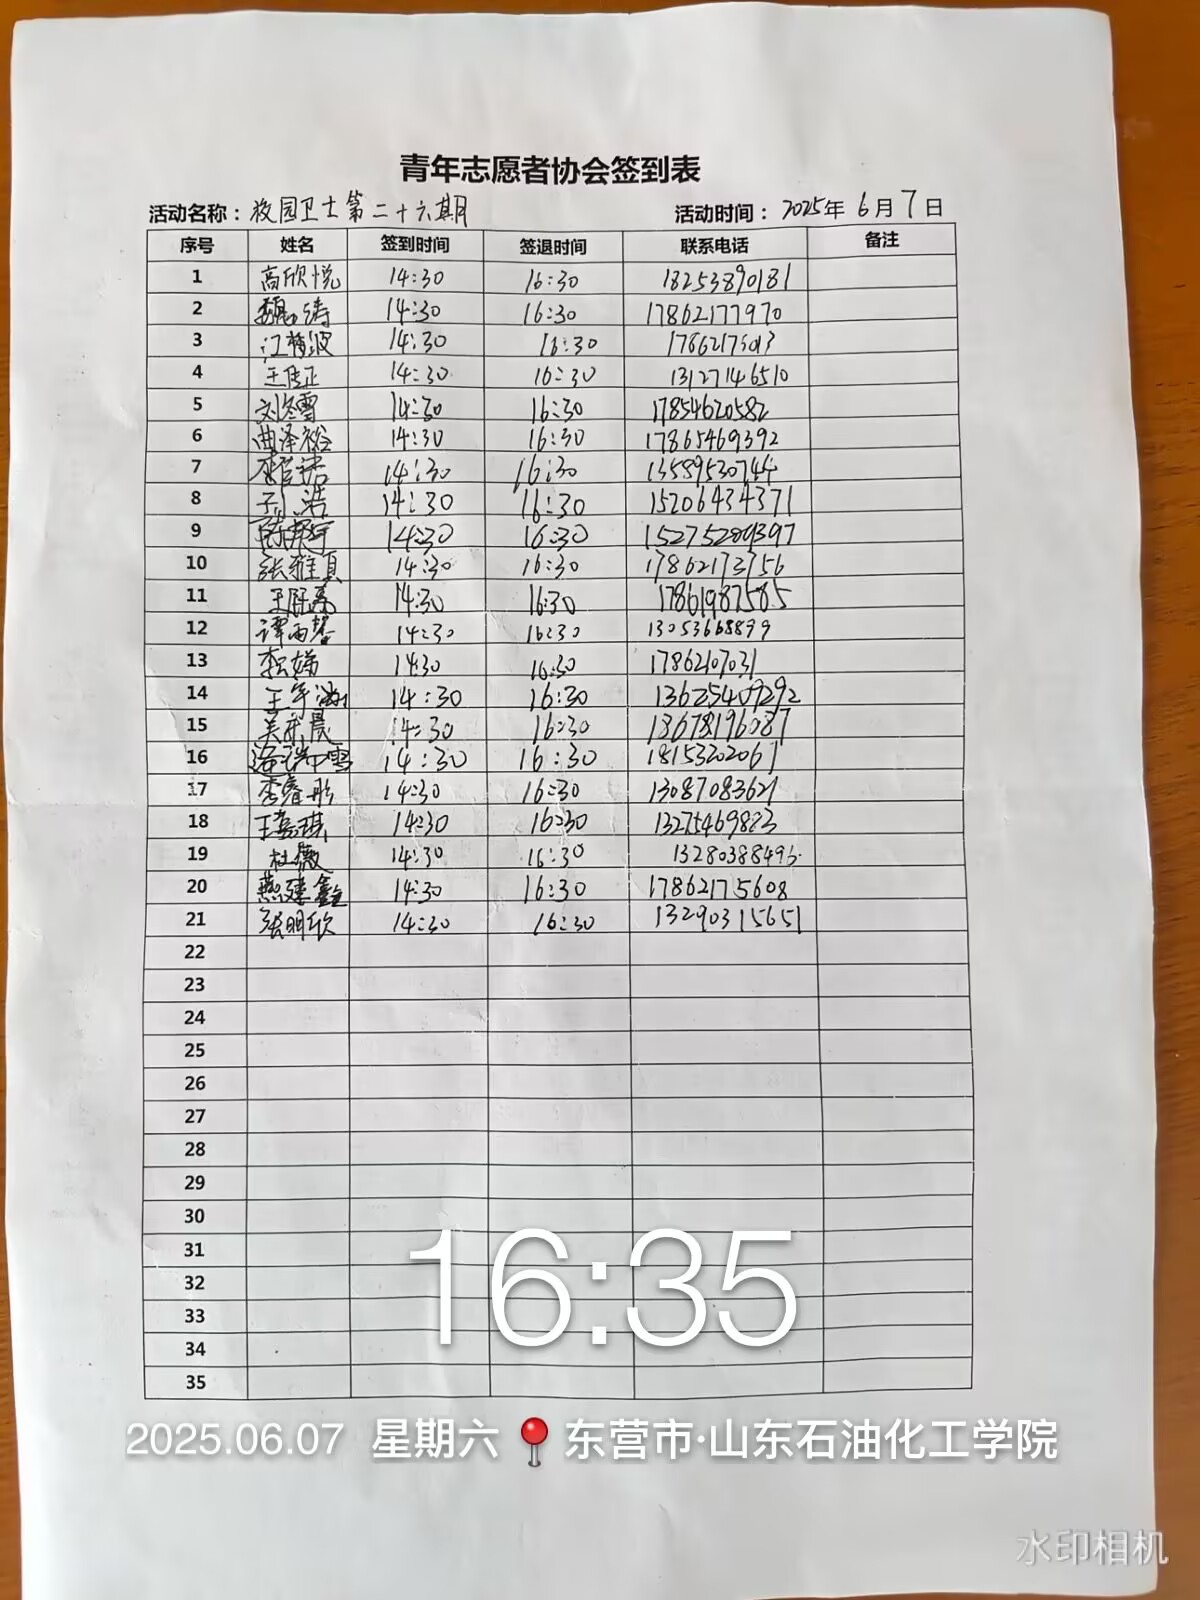 青年志愿者协会签到表
活动名称：校园卫士第二十六期 活动时间：2025年 6月7日
序号 姓名 签到时间 签退时间 联系电话 备注
1 高欣悦 14:30 16:30 18253890181
2 魏涛 14:30 16:30 17862177970
3 14:30 16:30
4 王佳正 14:30 16:30 13127146510
5 刘冬雪 14:30 16:30 17854620582
6 曲泽裕 14:30 16:30 17865469392
7 14:30 16:30 13589530744
8 孙浩 14:30 16:30 15206434371
9 14:30 16:30 15275289397
10 张雅真 14:30 16:30 17862173756
11 14:30 16:30 17861987585
12 谭雨馨 14:30 16:30 13053668899
13 14:30 16:30 17862107031
14 14:30 16:30 13625409292
15 14:30 16:30 13678196087
16 14:30 16:30 18153202061
17 李睿彤 14:30 16:30 13087083621
18 王嘉琪 14:30 16:30 13275469883
19 杜薇 14:30 16:30 13280388496
20 燕建鑫 14:30 16:30 17862175608
21 张明欣 14:30 16:30 13290315651
22
23
24
25
26
27
28
29
30
31
32
33
34
35
16:35
2025.06.07 星期六 东营市·山东石油化工学院
水印相机